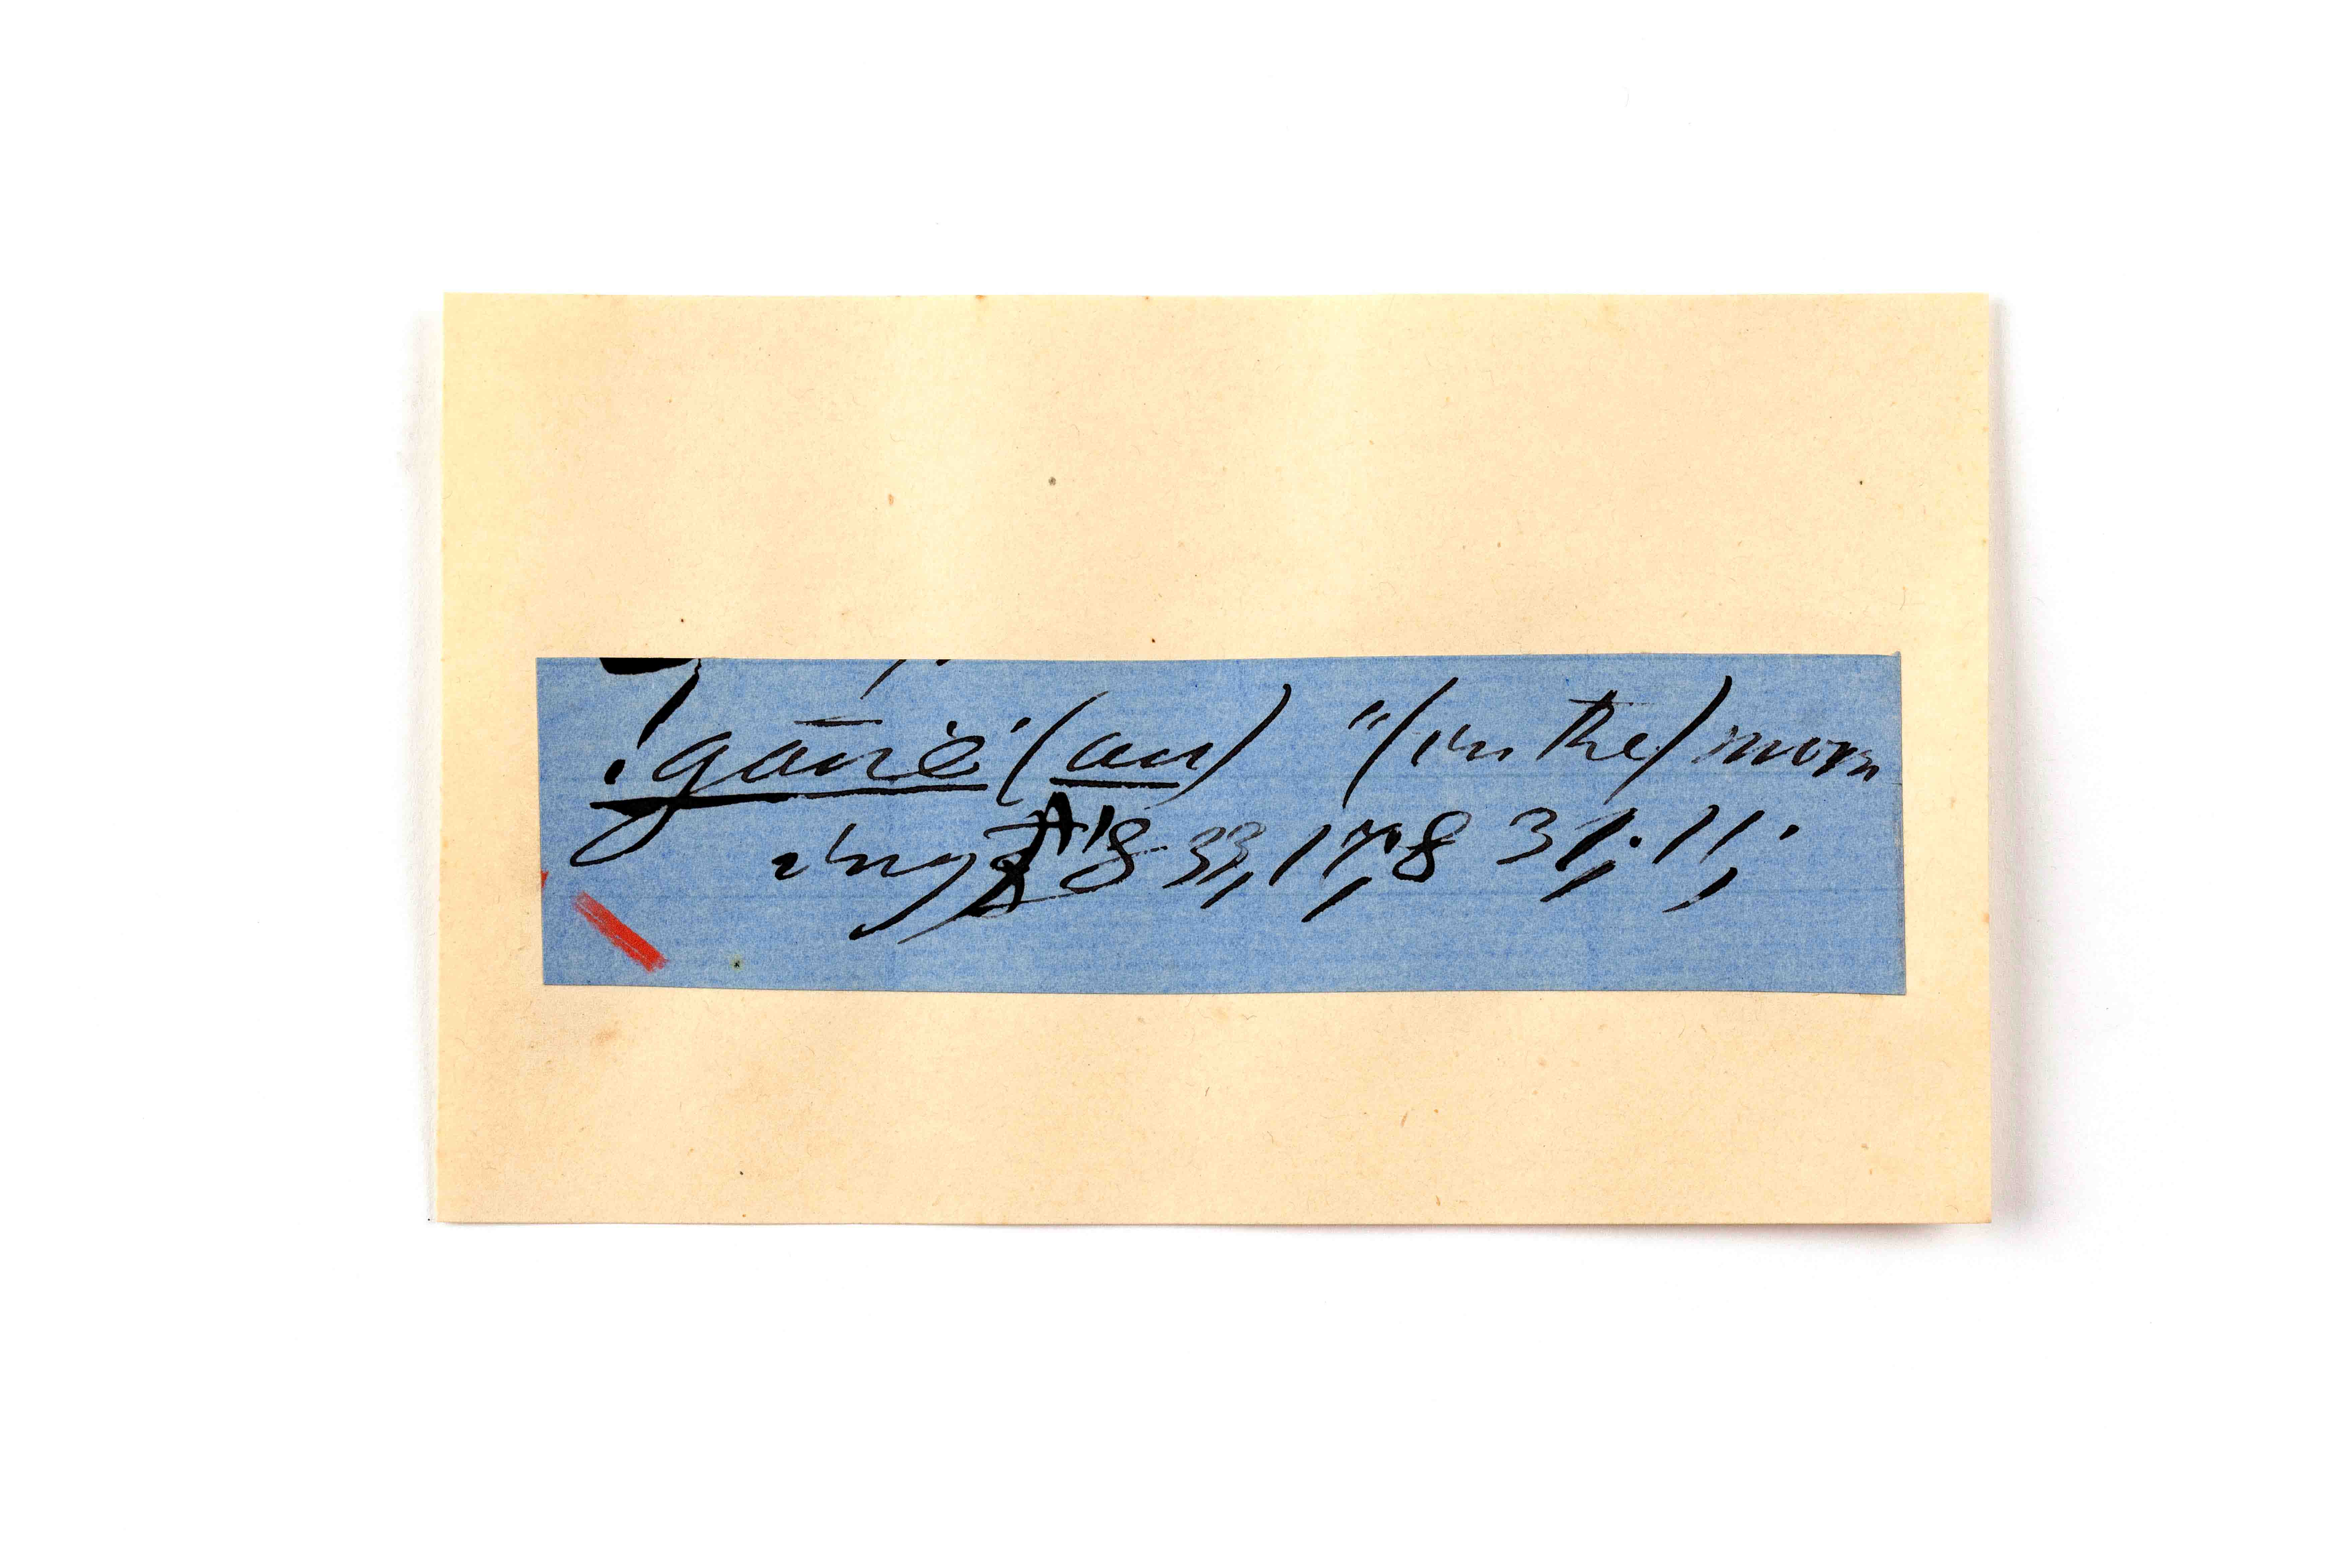 !gauë' (au) "(in the) morn
ing, A18 33, 17, 8 31; 11;